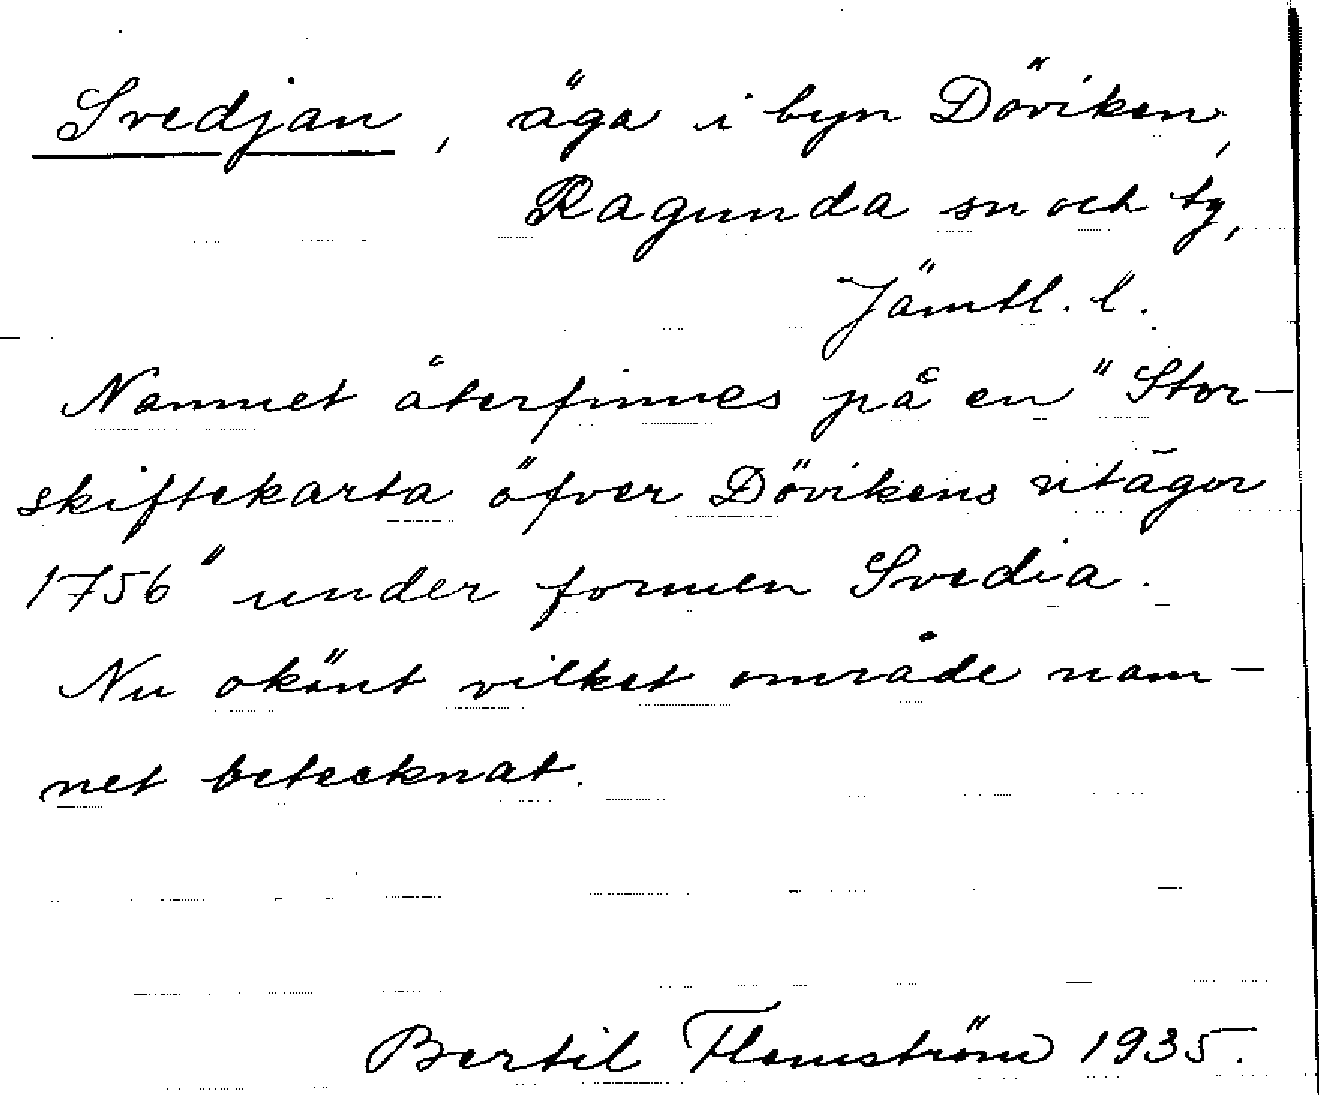 Svedjan, äga i byn Döviken,
Ragunda sn och tg,
Jämtl. l.
Namnet återfinnes på en "Stor-
skiftekarta öfver Dövikens utägor
1756" under formen Svedia.
Nu okänt vilket område nam-
net betecknat.
Bertil Flemström 1935.